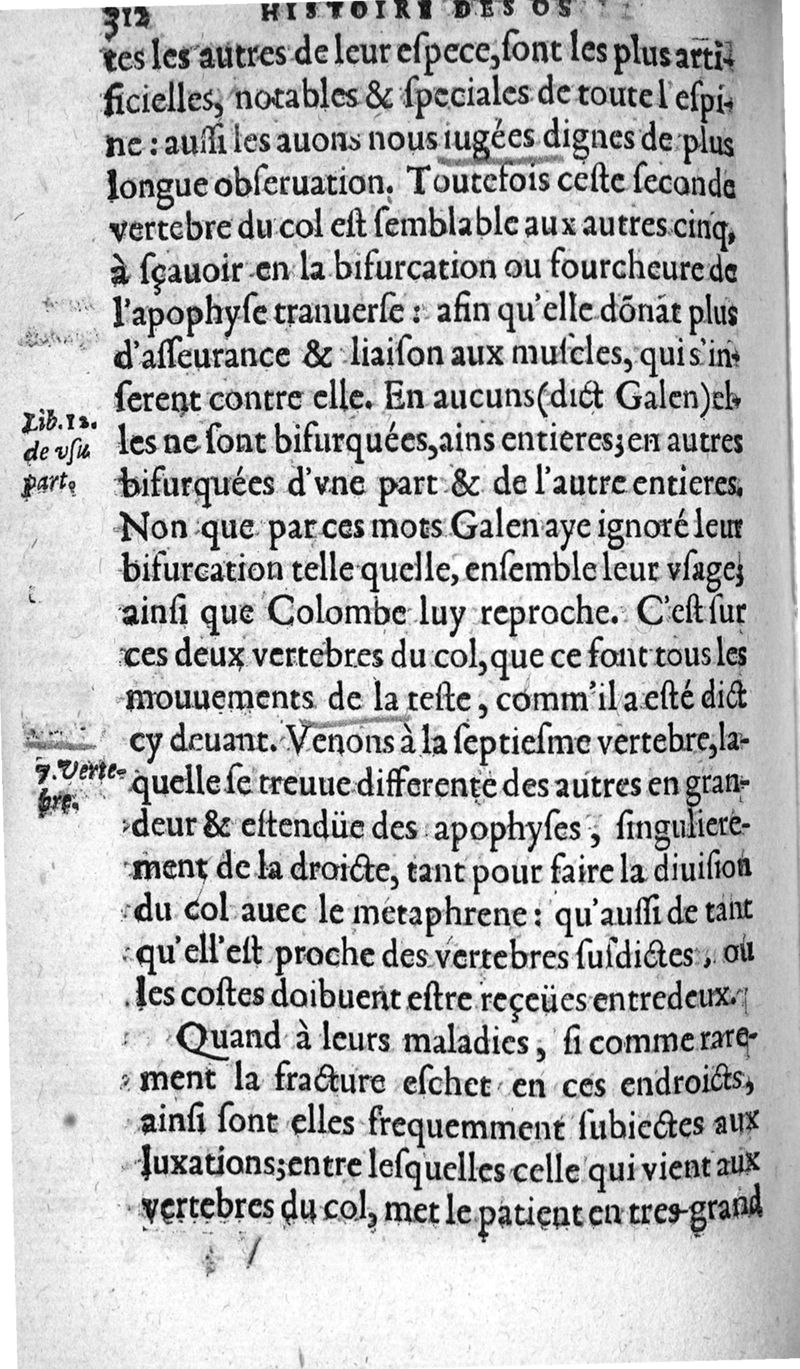 312 HISTOIRE DES OS
tes les autres de leur eſpece, ſont les plus arti-
ficielles, notables & ſpeciales de toute l'eſpi-
ne : auſſi les auons nous iugées dignes de plus
longue obſeruation. Toutefois ceſte ſeconde
vertebre du col eſt ſemblable aux autres cinq,
à ſçauoir en la bifurcation ou fourcheure de
l'apophyſe tranuerſe : afin qu'elle dōnāt plus
d'aſſeurance & liaiſon aux muſcles, qui s'in-
ſerent contre elle. En aucuns (dict Galen) el-
les ne ſont bifurquées, ains entieres; en autres
bifurquées d'vne part & de l'autre entieres.
Non que par ces mots Galen aye ignoré leur
bifurcation telle quelle, enſemble leur vſage;
ainſi que Colombe luy reproche. C'eſt ſur
ces deux vertebres du col, que ce font tous les
mouuements de la teſte, comm'il a eſté dict
cy deuant. Venons à la ſeptieſme vertebre, la-
quelle ſe treuue differente des autres en gran-
deur & eſtendüe des apophyſes, ſinguliere-
ment de la droicte, tant pour faire la diuiſion
du col auec le metaphrene : qu'auſſi de tant
qu'ell'eſt proche des vertebres ſuſdictes, où
les coſtes doibuent eſtre reçeües entredeux.
Quand à leurs maladies, ſi comme rare-
ment la fracture eſchet en ces endroicts,
ainſi ſont elles frequemment ſubiectes aux
luxations; entre leſquelles celle qui vient aux
vertebres du col, met le patient en tres-grand
Lib. 12.
de vſu
part.
7. Verte-
bre.